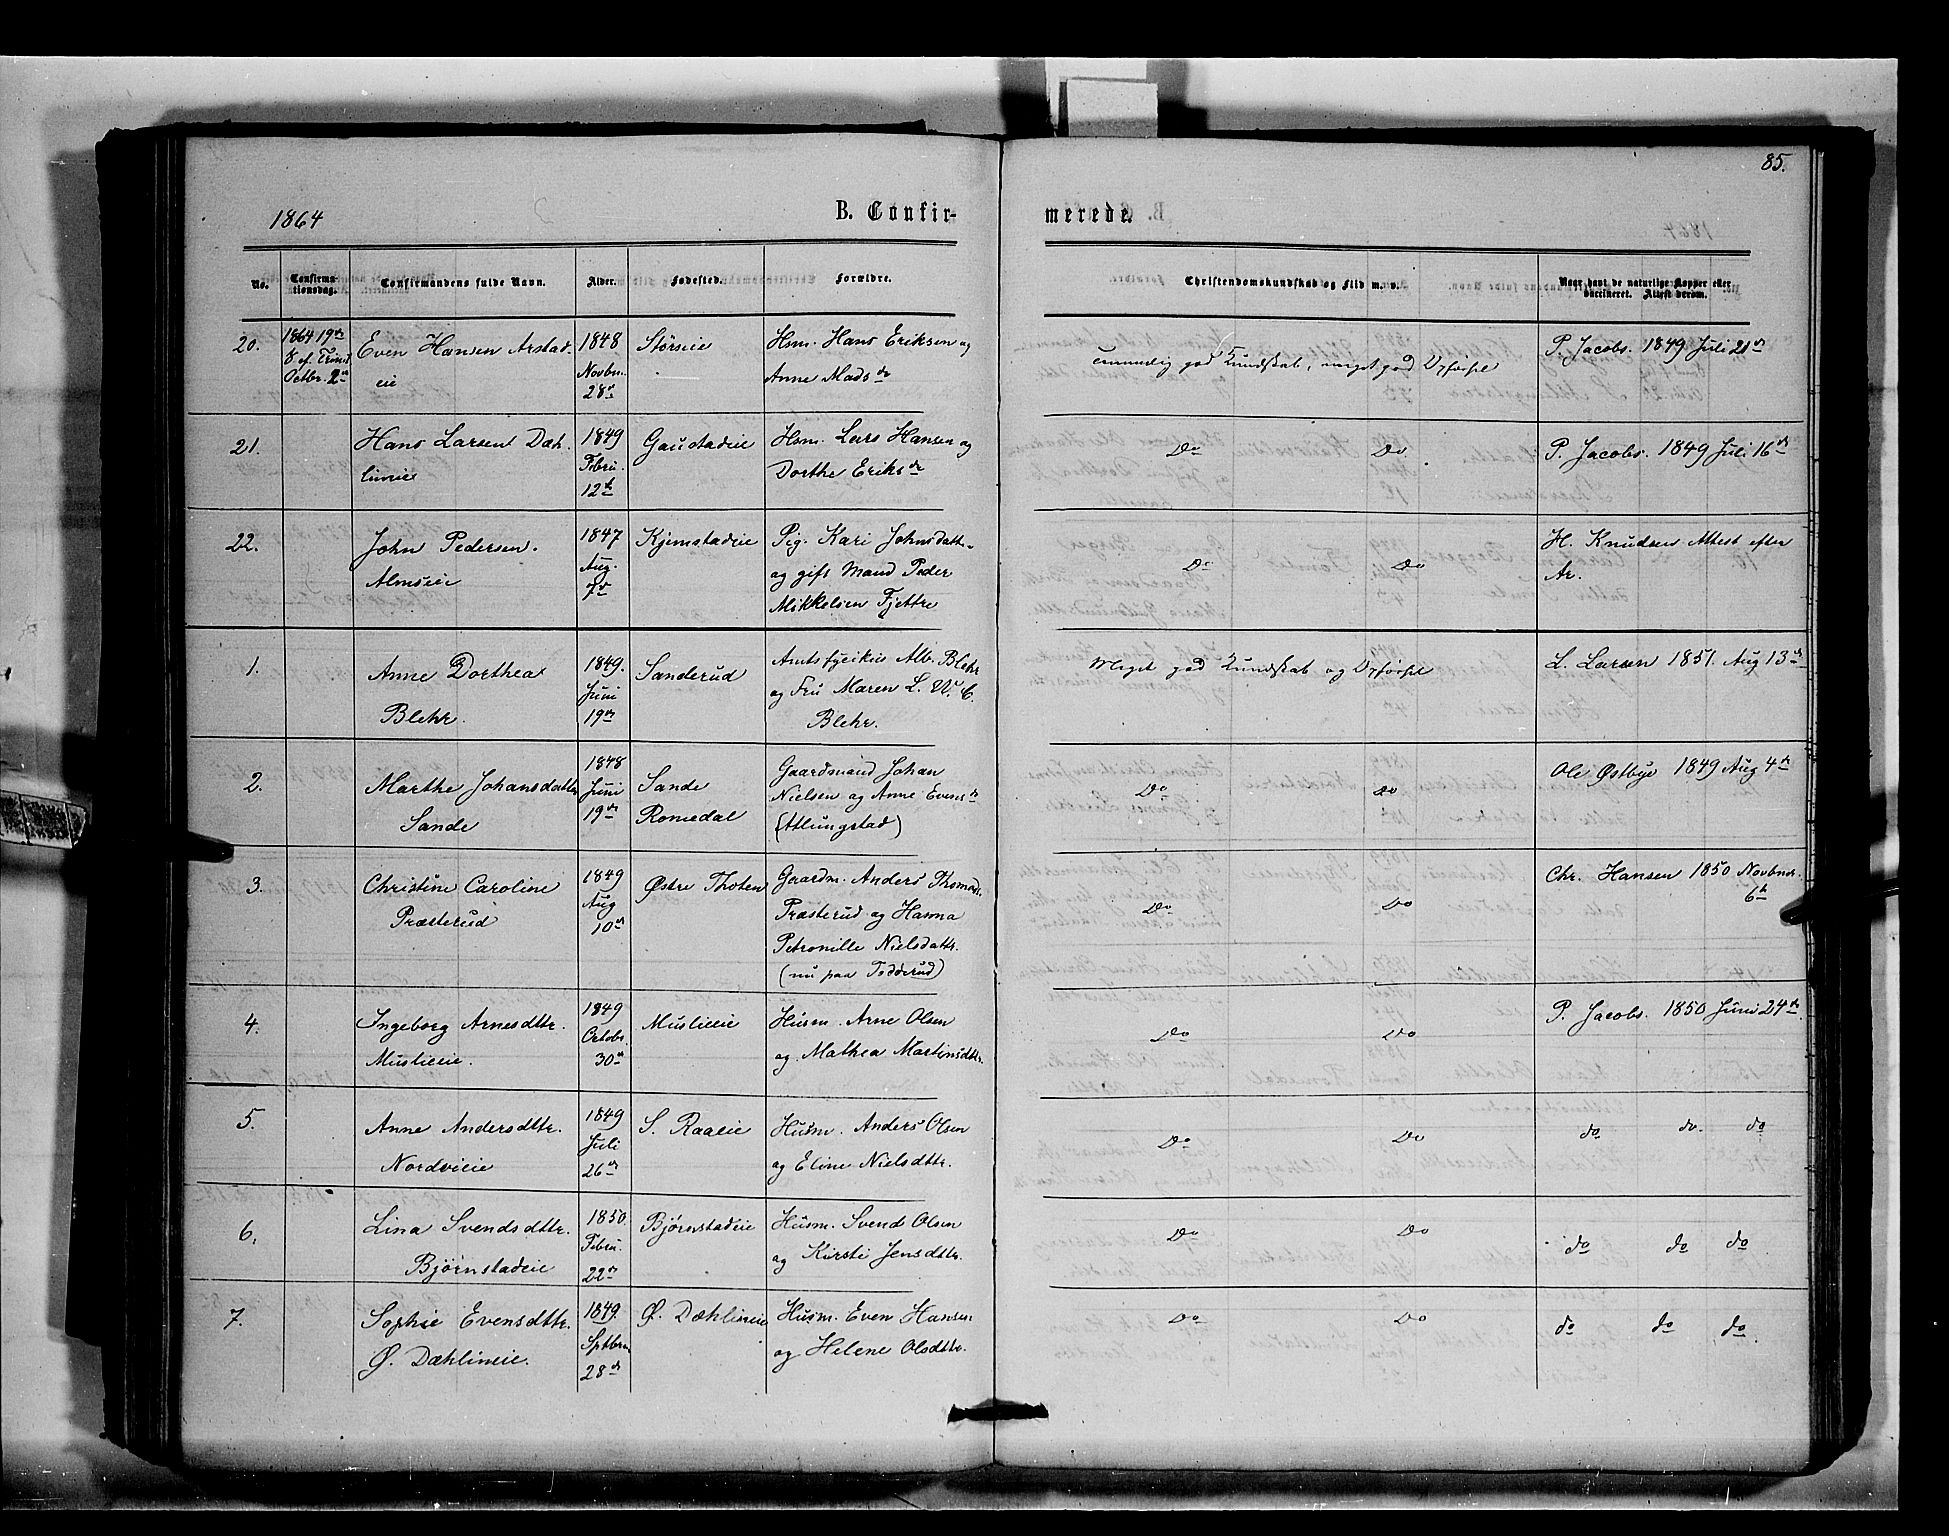 85.
1864
B. Confir-
merede.
No.
Confirma-
tionsdag.
Confirmandens fulde Navn.
Alder.
Fødested.
Forældre.
Christendomskundskab og Flid m. v.
Naar havt de naturlige Kopper eller
vaccineret. Attest derom.
20.
1864 19de
S. ef. Trinit
Octbr. 2den
Even Hansen Arstad-
eie
1848
Novbr.
28de
Størseie
Hsm. Hans Eriksen og
Anne Madsdr
god Kundskab, meget god Opførsel
P. Jacobs. 1849 Juli 21de
21.
Hans Larsen Dæh-
linseie
1849
Febru.
12te
Gaustadeie
Hsm. Lars Hansen og
Dorthe Eriksdr
Do
Do
P. Jacobs. 1849 Juli 16de
22.
John Pedersen.
Almseie
1847
Aug.
7de
Kjemstadeie
Pig. Kari Johnsdattr.
og gift Mand Peder
Mikkelsen Fjettre
Do
Do
H. Knudsen Attest efter
Ar.
1.
Anne Dorthea
Blehr.
1849.
Juni
19de
Sanderud
Amtsfysikus Alb. Blehr
og Fru Maren L. W. C.
Blehr.
Meget god Kundskab og Opførsel
L. Larsen 1851. Aug 13de
2.
Marthe Johansdatter
Sande
1848
Juni
19de
Sande
Romedal
Gaardmand Johan
Nielsen og Anne Evensdr
(Atlungstad)
Do
Do
Ole Østbye 1849 Aug 4de
3.
Christine Caroline
Præsterud
1849
Aug
10de
Østre Thoten
Gaardm. Anders Thomass.
Præsterud og Hanna
Petronille Nielsdattr.
(nu paa Todderud)
Do
Do
Chr. Hansen 1850 Novbr.
6te
4.
Ingeborg Arnesdttr.
Muslieeie.
1849
Octobr.
30te
Muslieeie
Husm. Arne Olsen
og Mathea Martinsdttr.
Do
Do
P. Jacobs. 1850 Juni 24de
5.
Anne Andersdttr.
Nordvieie
1849
Juli
26de
S. Raaeie
Husm. Anders Olsen
og Eline Nielsdttr.
Do
Do
do do. do
6.
Lina Svendsdttr.
Bjørnstadeie
1850.
Febru.
22de
Bjørnstadeie
Husm. Svend Olsen
og Kirsti Jensdttr.
Do
Do
do do do
7.
Sophie Evensdttr.
Ø. Dæhlineie.
1849.
Sptbr.
28de
Ø. Dæhlineie
Husm. Even Hansen
og Helene Olsdttr.
Do
Do
do do do.